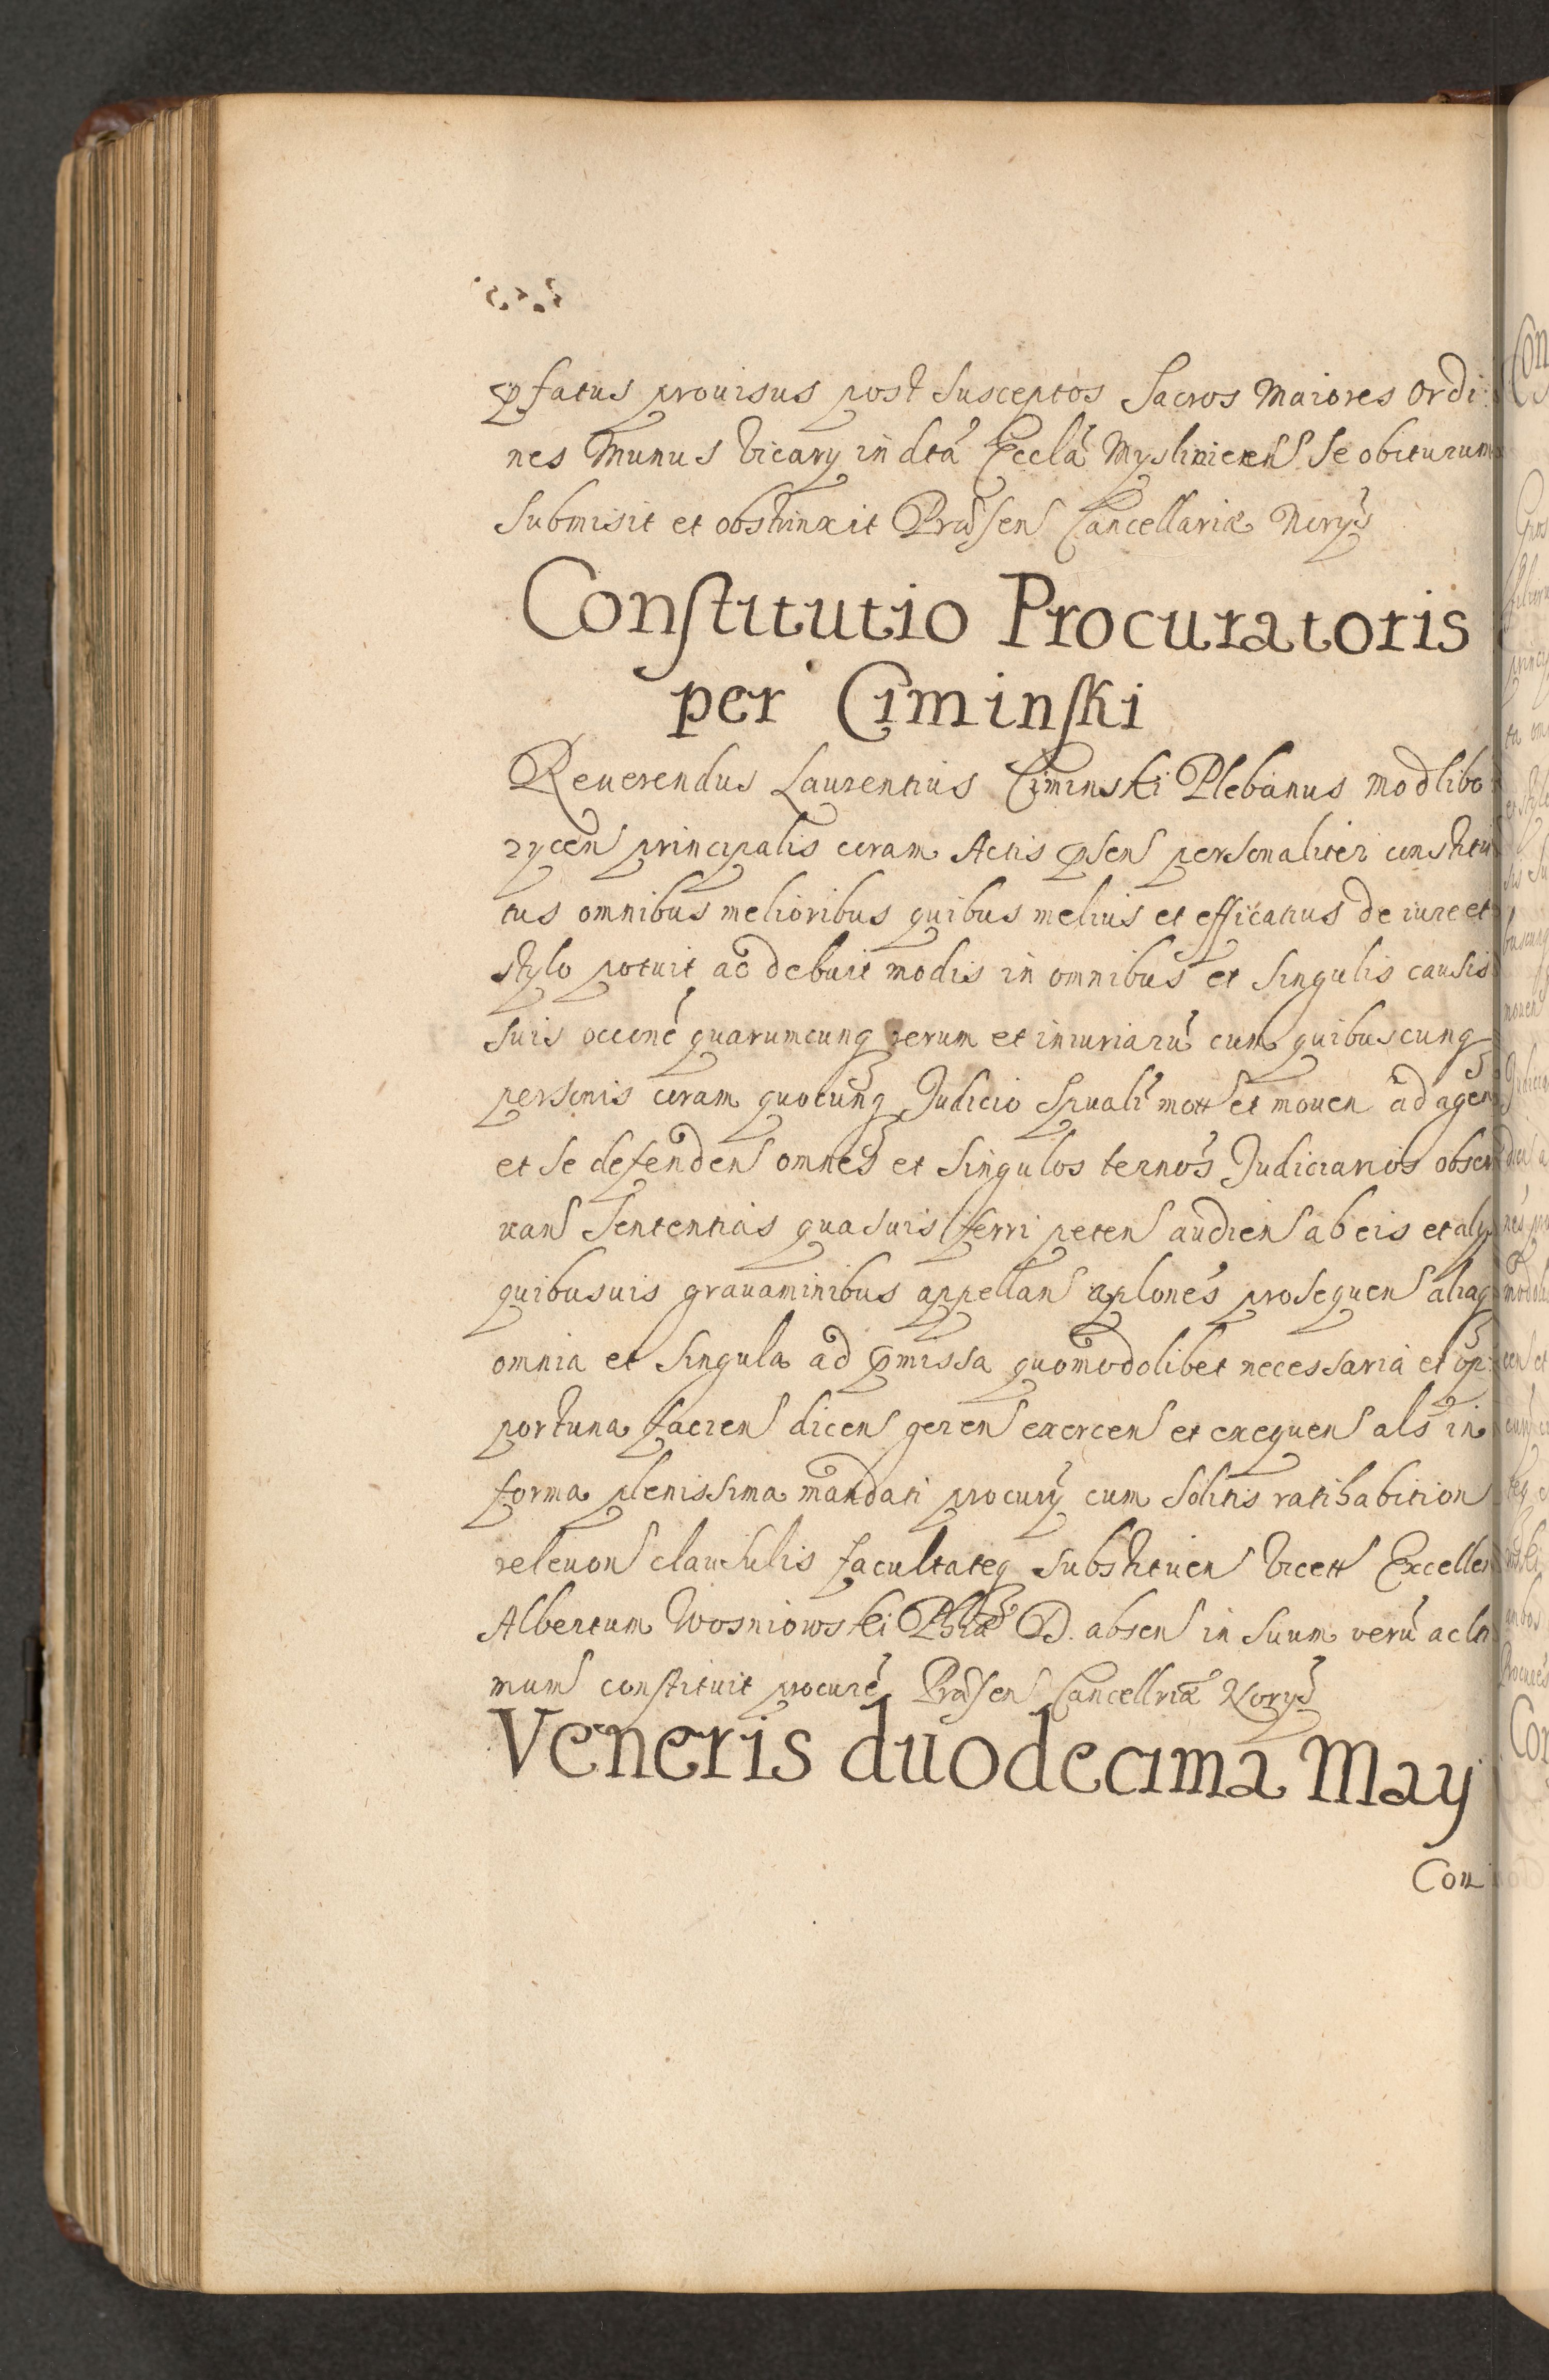 pfatus prouisus post susceptos Sacros Maiores Ordi
nes Munus Vicary in dtā Ecclā Mysliniceñ Se obiturum
Submisit et obstrinxit Præsen Cancellariæ Norys
Constitutio Procuratoris
per Ciminski
Reuerendus Laurentius Ciminski Plebanus Modlibo
zyceñ principalis coram Actis pseñ personaliter constitu
tus omnibus melioribus quibus melius et efficatius de iure et
stylo potuit ac debuit modis in omnibus et Singulis causis
suis occoné quarumcunq rerum et iniuriarū cum quibuscunq
personis coram quocunq Judicio Spuali mott et mouen ad agen
et se defenden omnes et Singulos ternos Judiciarios obser
uan Sententias quasuis ferri peten audien ab eis et alys
quibusuis grauaminibus appellan aplones prosequen aliaq
omnia et Singula ad pmissa quomodolibet necessaria et op
portuna facien dicen geren exercen et exequen als in
forma plenissima mandati procury cum Solitis ratihabition
releuon clausulis facultateq substituen Vicett Excellen
Albertum Wosniowski Phiæ D. absen in Suum verū ac ltt
mum constituit procuré Præsen Cancellriæ Norys
Veneris duodecima May
Con